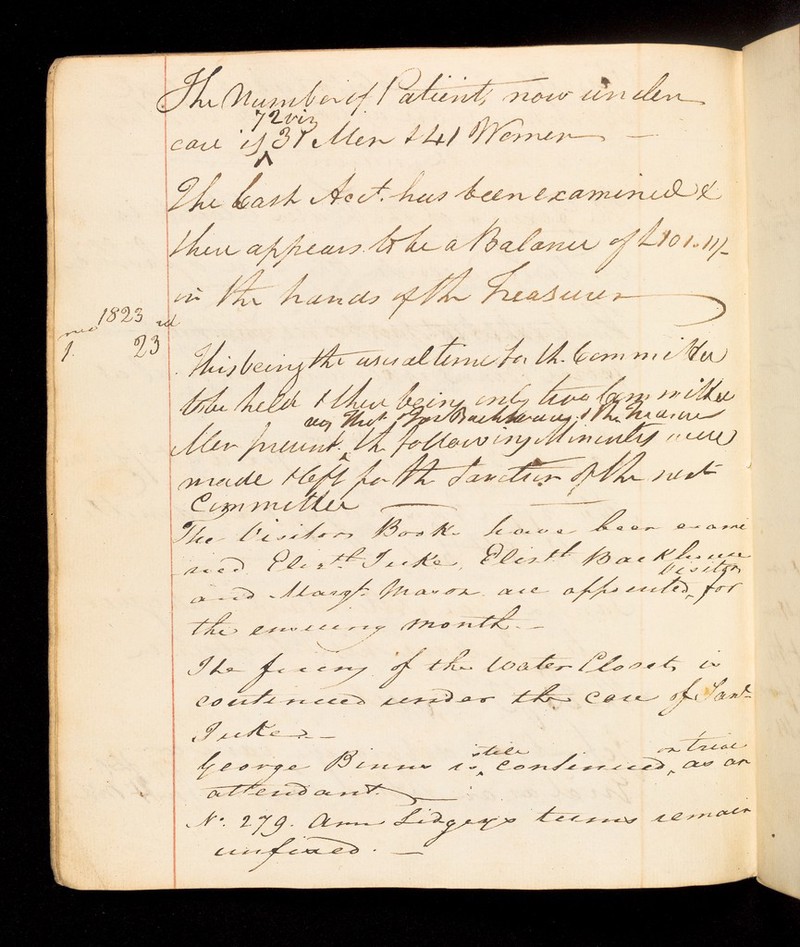 The Number of Patients now under
72 viz
care is 31 Men & 41 Women —
The Cash Acct. has been examined &
there appears to be a Balance of £101.11/-
in the hands of the Treasurer
1823
mo rd
1. 23
This being the usual time for the Committee
to be held & there being only two Committee
viz Thos. Backhouse & the Treasurer
Men present, the following Minutes were
made & left for the Sanction of the next
Committee —
The Visitors Books have been exami
ned Elizth. Tuke, Elizth. Backhouse
Visitors
and Margt. Mason are appointed for
the ensuing month. —
The fixing of the Water Closets is
continued under the care of Saml.
Tuke. —
still on trial
George Binns is continued, as an
attendant.
No. 279. Ann Lidgey's terms remain
unfixed. —